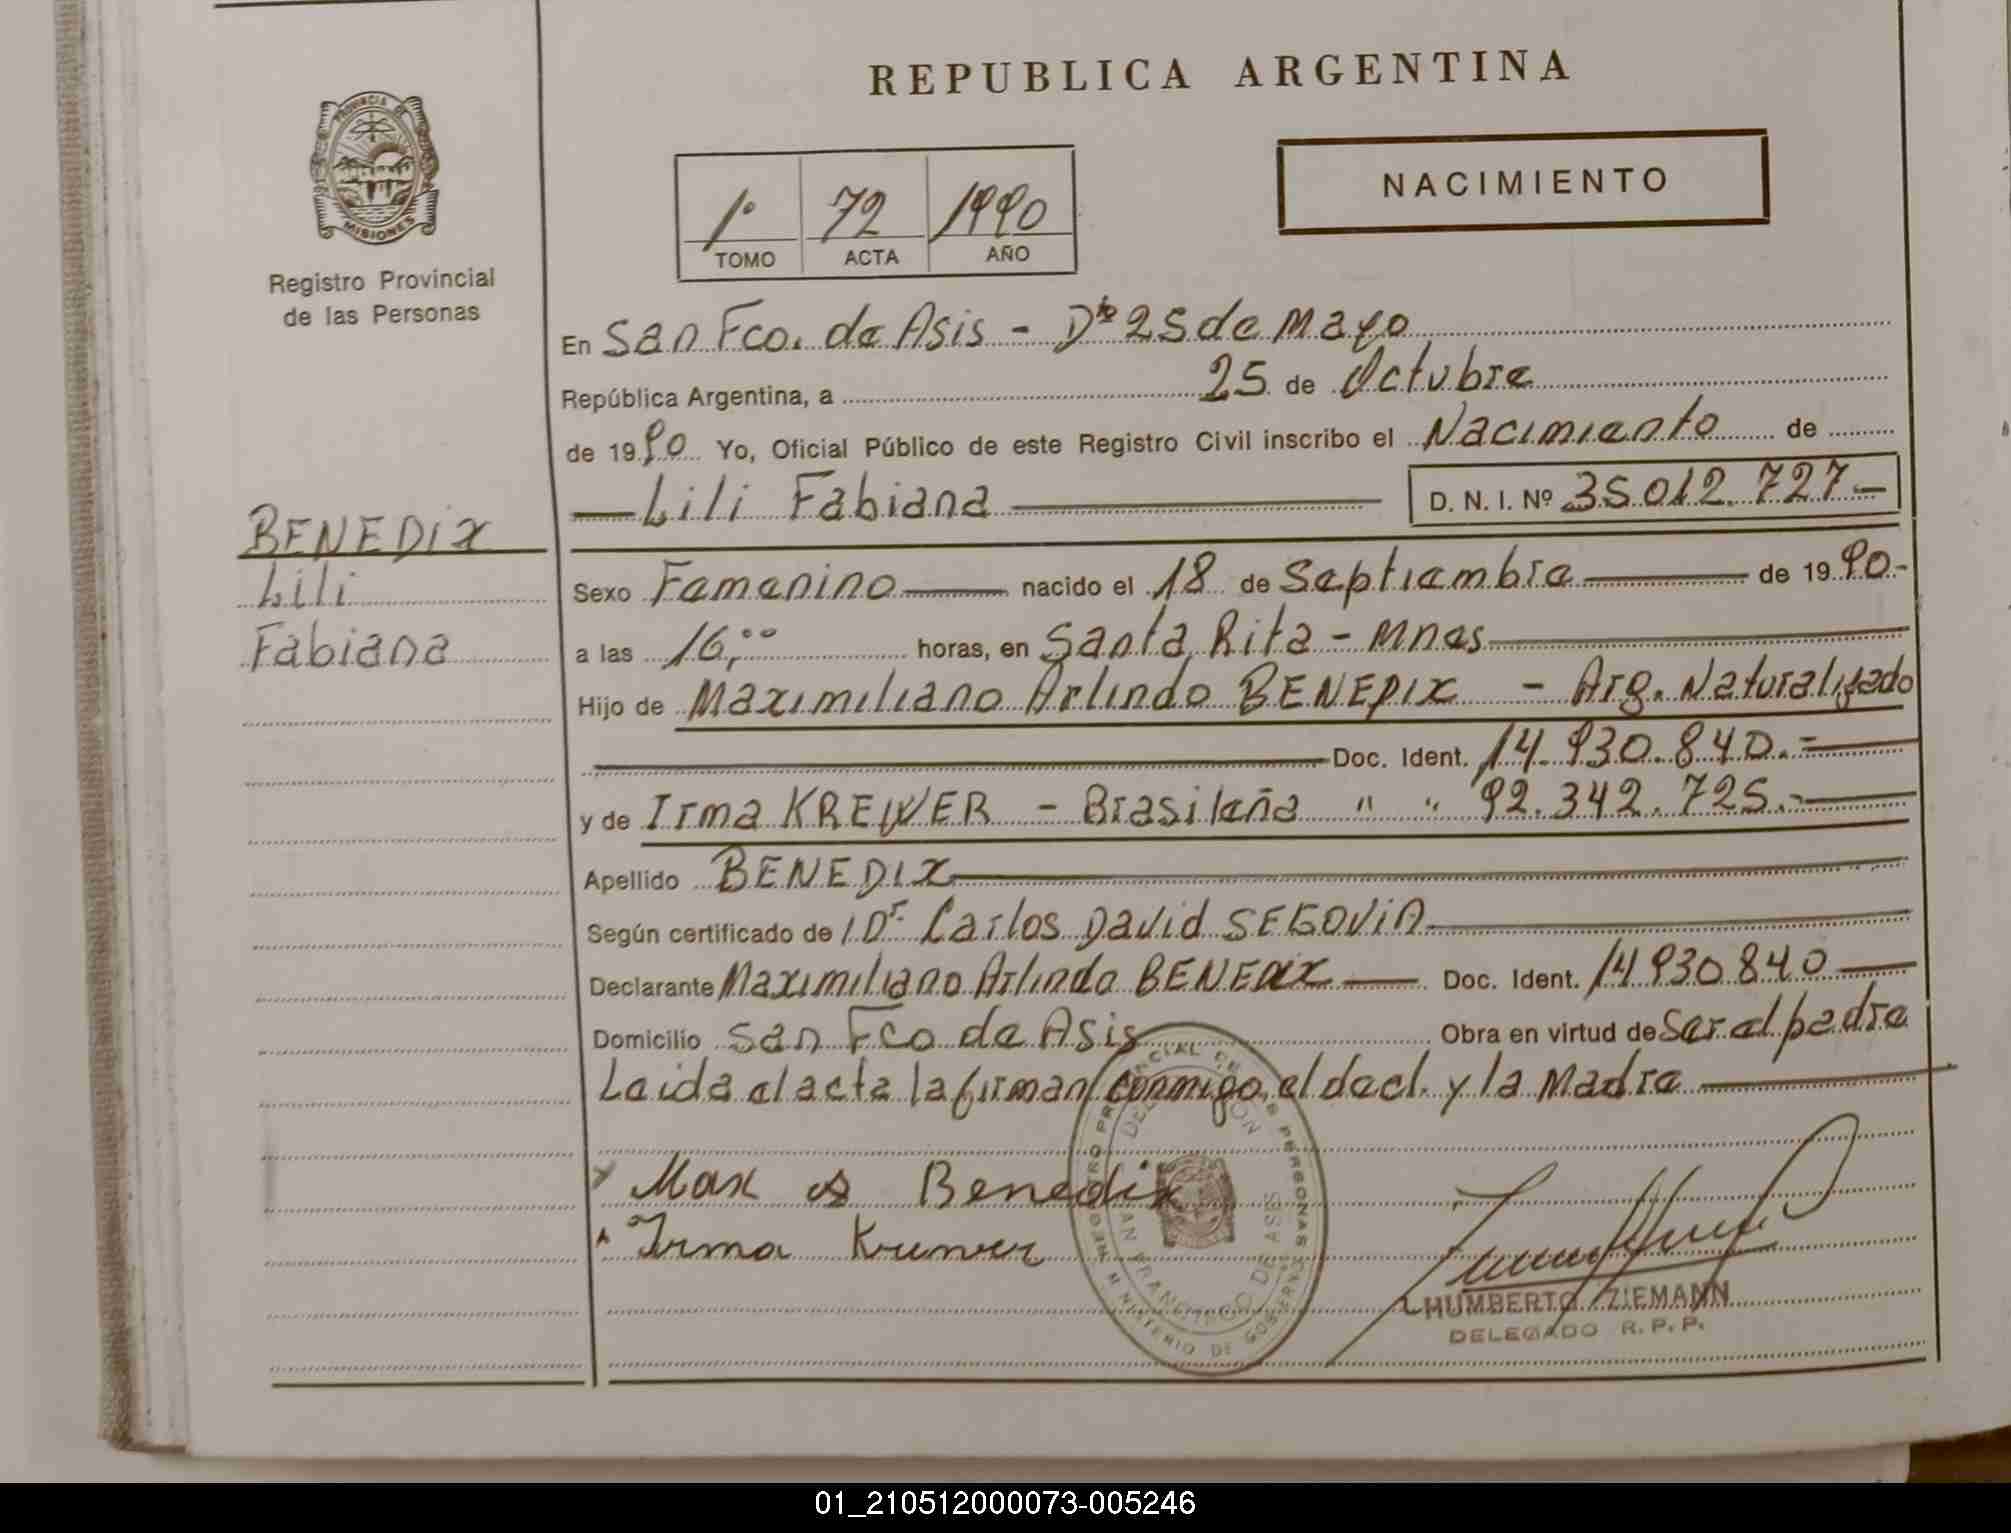 REPUBLICA ARGENTINA
NACIMIENTO
PROVINCIA DE
MISIONES
Registro Provincial
de las Personas
1º 72 1990
TOMO ACTA AÑO
En San Fco. de Asis - Dto 25 de Mayo
República Argentina, a 25 de Octubre
de 1990 Yo, Oficial Público de este Registro Civil inscribo el Nacimiento de
Lili Fabiana D. N. I. Nº 35.012.727-
BENEDIX
Lili
Fabiana
Sexo Femenino nacido el 18 de Septiembre de 1990-
a las 16,00 horas, en Santa Rita - Mnes
Hijo de Maximiliano Arlindo BENEDIX - Arg. Naturalizado
Doc. Ident. 14.930.840.-
y de Irma KREWER - Brasileña " " 92.342.725.-
Apellido BENEDIX
Según certificado de Dr. Carlos David SEGOVIA
Declarante Maximiliano Arlindo BENEDIX Doc. Ident. 14930840
Domicilio San Fco de Asis Obra en virtud de Ser el padre
Leida el acta la firman conmigo, el decl. y la Madre
Max Benedix
Irma Kruwer
HUMBERTO ZIEMANN
DELEGADO R. P. P.
01_210512000073-005246